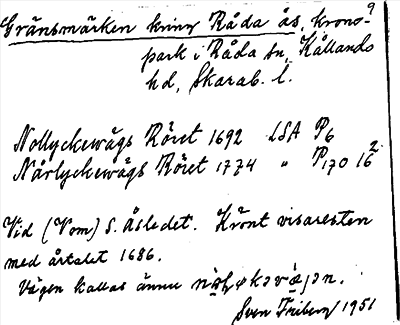 Gränsmärken kring Råda ås, krono-
park i Råda sn, Kållands
hd, Skarab. l.
Nollyckewägs Röret 1692 LSA P6
Nårlyckewägs Röret 1774 " P170 16²
Vid (Vom) S. Åsledet. Krönt visaresten
med årtalet 1686.
Vägen kallas ännu
Sven Friberg 1951